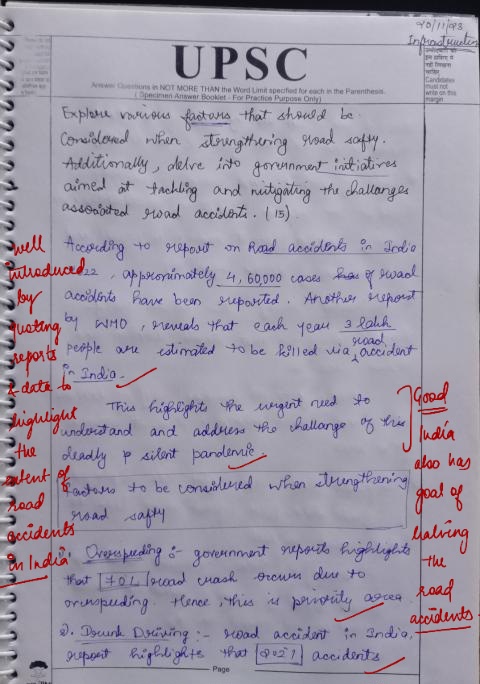 20/11/23
Infrastructure
UPSC
Answer Questions in NOT MORE THAN the Word Limit specified for each in the Parenthesis.
( Specimen Answer Booklet - For Practice Purpose Only)
Candidates
must not
write on this
margin
Explore various factors that should be
considered when strengthening road safty.
Additionally, delve into government initiatives
aimed at tackling and mitigating the challanges
associated road accidents. (15).
According to report on Road accidents in India
22, approximately 4,60,000 cases of road
accidents have been reported. Another report
by WHO, reveals that each year 3 lakh
people are estimated to be killed via road accident
in India.
This highlights the urgent need to
understand and address the challange of this
deadly silent pandemic.
Factors to be considered when strengthening
road safty
1. Overspeeding :- government reports highlights
that 70% road crash occurs due to
overspeeding. Hence, this is priority area.
2. Drunk Driving :- road accident in India,
report highlights that 2021 accidents
Page
well
introduced
by
quoting
reports
& data to
highlight
the
extent of
road
accidents
in India
Good
India
also has
goal of
halving
the
road
accidents